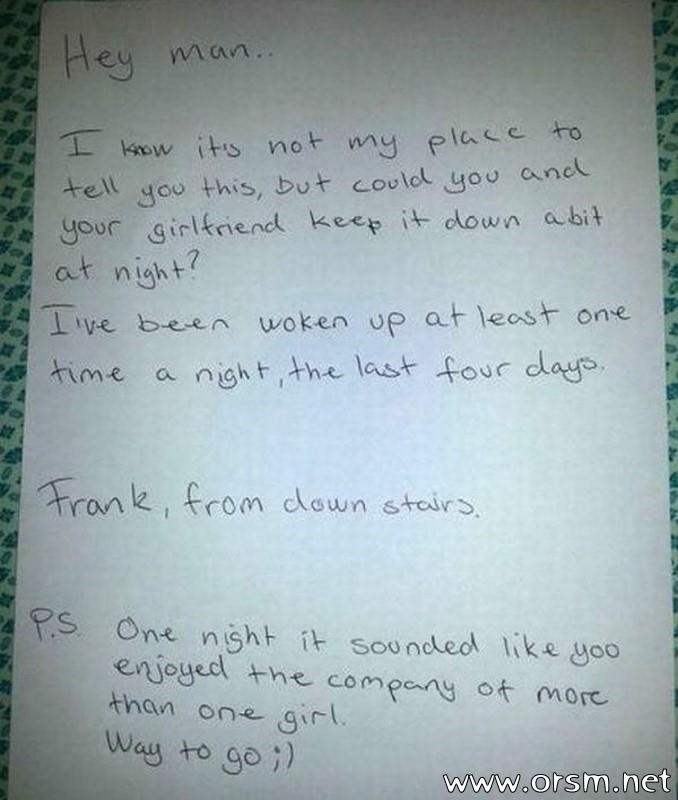 Hey man..
I know it's not my place to
tell you this, but could you and
your girlfriend keep it down abit
at night?
I've been woken up at least one
time a night, the last four days.
Frank, from down stairs.
P.S. One night it sounded like yoo
enjoyed the company of more
than one girl.
Way to go ;)
www.orsm.net